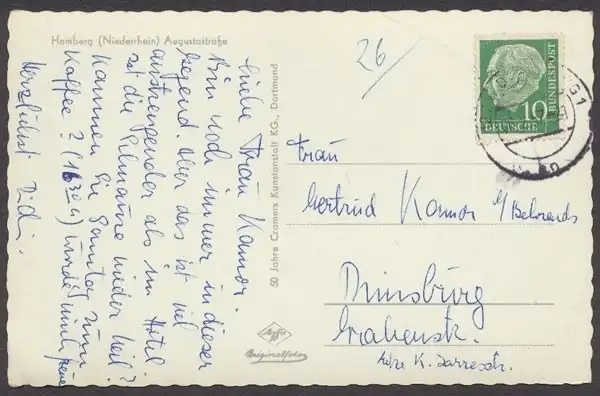 Homberg (Niederrhein) Augustastraße
26
Liebe Frau Kamor.
Bin noch immer in dieser
Gegend. Aber das ist viel
anstrengender als im Hotel
ist die Pilmaurze wieder heil?
Kommen Sie Samstag zum
Kaffee? (16 30 h) Würde mich freuen
Herzlichst Didi.
50 Jahre Cramers Kunstanstalt KG., Dortmund
Agfa
Originalfotos
10
DEUTSCHE
BUNDESPOST
Frau
Gertrud Kamor b/Behrends
Duisburg
Grabenstr.
Nähe K. Jarresstr.